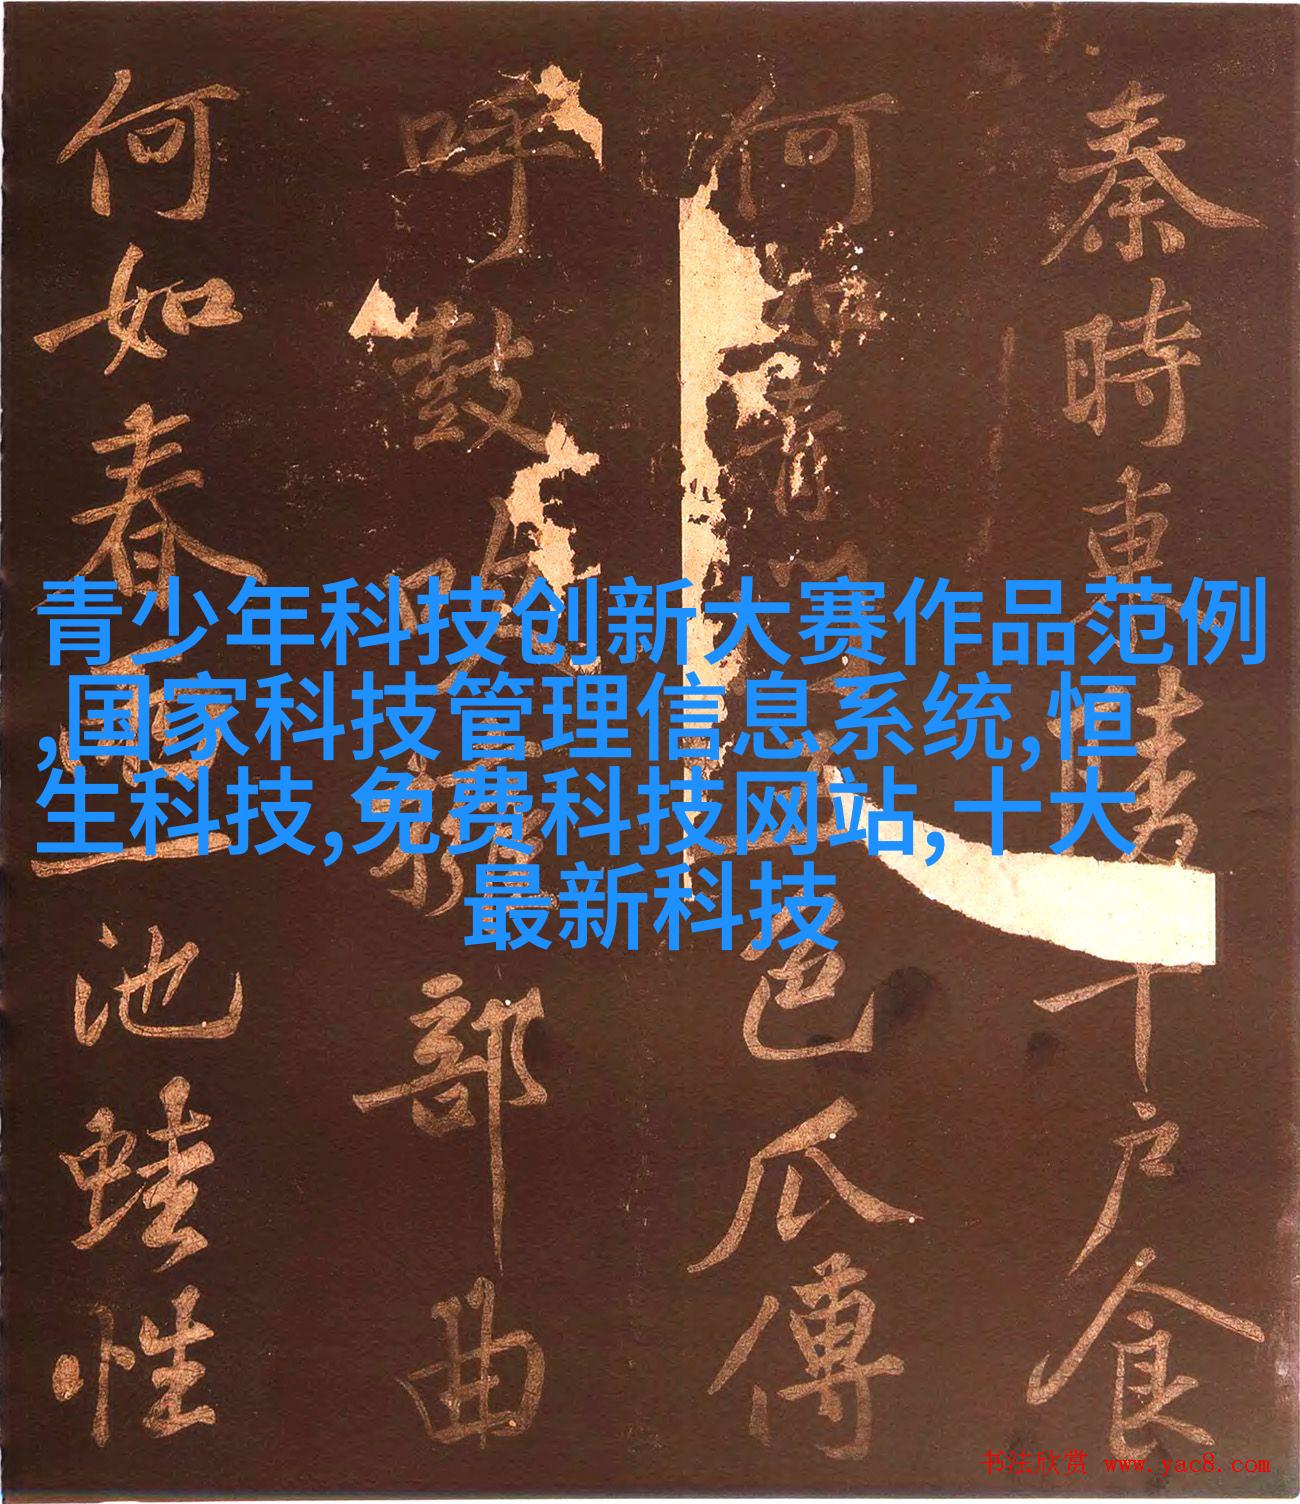 秦時東千戶食
何如青門五色瓜傅
呼鼓吹擁部曲
何如春雨一池蛙性
青少年科技创新大赛作品范例
,国家科技管理信息系统,恒
生科技,免费科技网站,十大
最新科技
书法欣赏 www.yac8.com